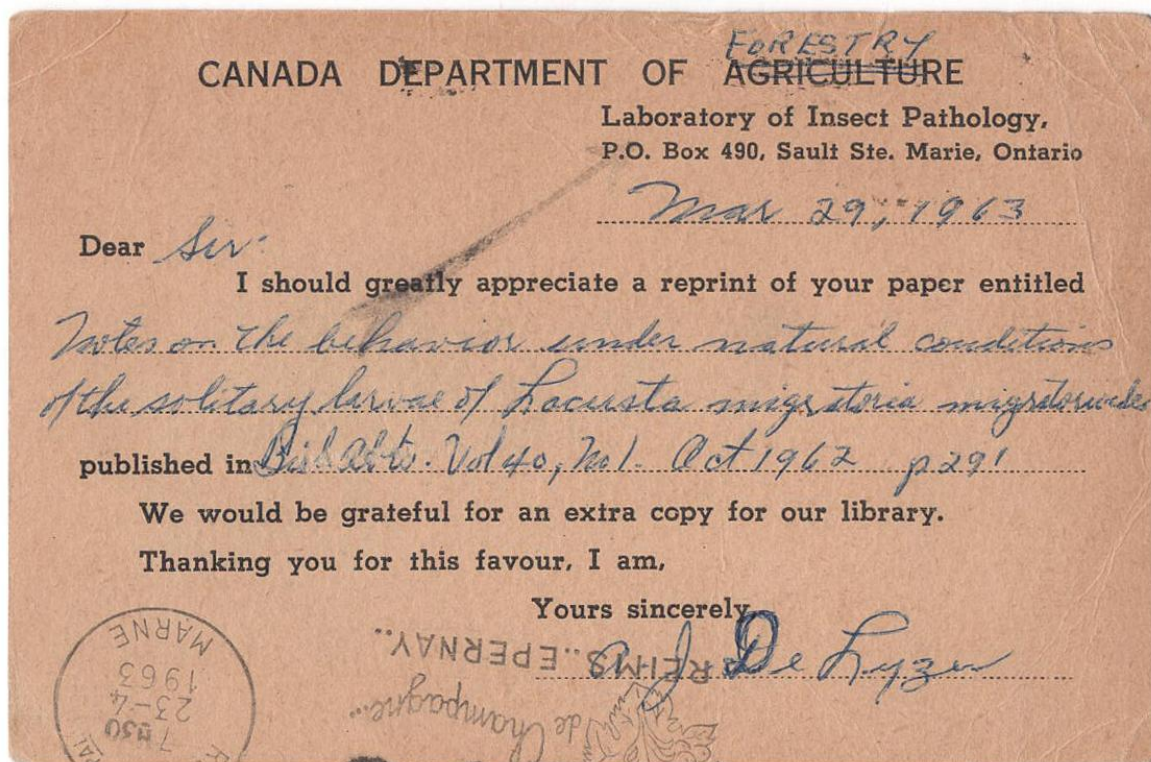 FORESTRY
CANADA DEPARTMENT OF AGRICULTURE
Laboratory of Insect Pathology,
P.O. Box 490, Sault Ste. Marie, Ontario
Mar 29, 1963
Dear Sir:
I should greatly appreciate a reprint of your paper entitled
Notes on the behavior under natural conditions
of the solitary larvae of Locusta migratoria migratorioides
published in Biol Abts. Vol 40, No 1. Oct 1962 p 291
We would be grateful for an extra copy for our library.
Thanking you for this favour, I am,
Yours sincerely,
J De Lyzer
REIMS..EPERNAY..
de Champagne...
MARNE
1963
23-4
7 H30